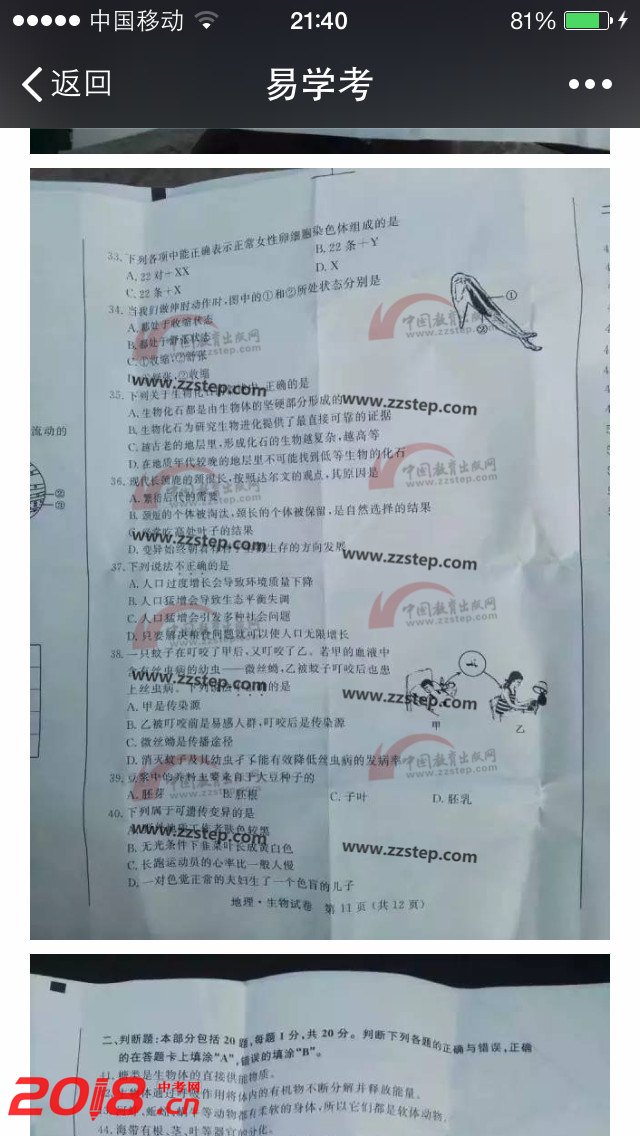 中国移动 21:40 81%
返回 易学考
33. 下列各项中能正确表示正常女性卵细胞染色体组成的是
A. 22 对+XX B. 22 条+Y
C. 22 条+X D. X
34. 当我们做伸肘动作时,图中的①和②所处状态分别是
A. 都处于收缩状态
B. 都处于舒张状态
C. ①收缩,②舒张
舒张,②收缩
①
②
35. 下列关于生物化石 正确的是
A. 生物化石都是由生物体的坚硬部分形成的
B. 生物化石为研究生物进化提供了最直接可靠的证据
C. 越古老的地层里,形成化石的生物越复杂,越高等
D. 在地质年代较晚的地层里不可能找到低等生物的化石
36. 现代长颈鹿的颈很长,按照达尔文的观点,其原因是
A. 繁衍后代的需要
B. 颈短的个体被淘汰,颈长的个体被保留,是自然选择的结果
吃高处叶子的结果
D. 变异始终朝着 生存的方向发展
37. 下列说法不正确的是
A. 人口过度增长会导致环境质量下降
B. 人口猛增会导致生态平衡失调
C. 人口猛增会引发多种社会问题
D. 只要解决粮食问题就可以使人口无限增长
38. 一只蚊子在叮咬了甲后,又叮咬了乙。若甲的血液中
含有丝虫病的幼虫——微丝蚴,乙被蚊子叮咬后也患
上丝虫病。下列 的是
A. 甲是传染源
B. 乙被叮咬前是易感人群,叮咬后是传染源
C. 微丝蚴是传播途径
D. 消灭蚊子及其幼虫孑孓能有效降低丝虫病的发病率
甲 乙
39. 豆浆中的养料主要来自于大豆种子的
A. 胚芽 B. 胚根 C. 子叶 D. 胚乳
40. 下列属于可遗传变异的是
肤色较黑
B. 无光条件下韭菜叶长成黄白色
C. 长跑运动员的心率比一般人慢
D. 一对色觉正常的夫妇生了一个色盲的儿子
地理·生物试卷 第 11 页(共 12 页)
流动的
②
③
中国教育出版网
www.zzstep.com
二、判断题:本部分包括 20 题,每题 1 分,共 20 分。判断下列各题的正确与错误,正确
的在答题卡上填涂“A”,错误的填涂“B”。
41. 糖类是生物体的直接供能物质。
体通过呼吸作用将体内的有机物不断分解并释放能量。
等动物都有柔软的身体,所以它们都是软体动物。
44. 海带有根、茎、叶等器官的分化。
2018中考网.cn